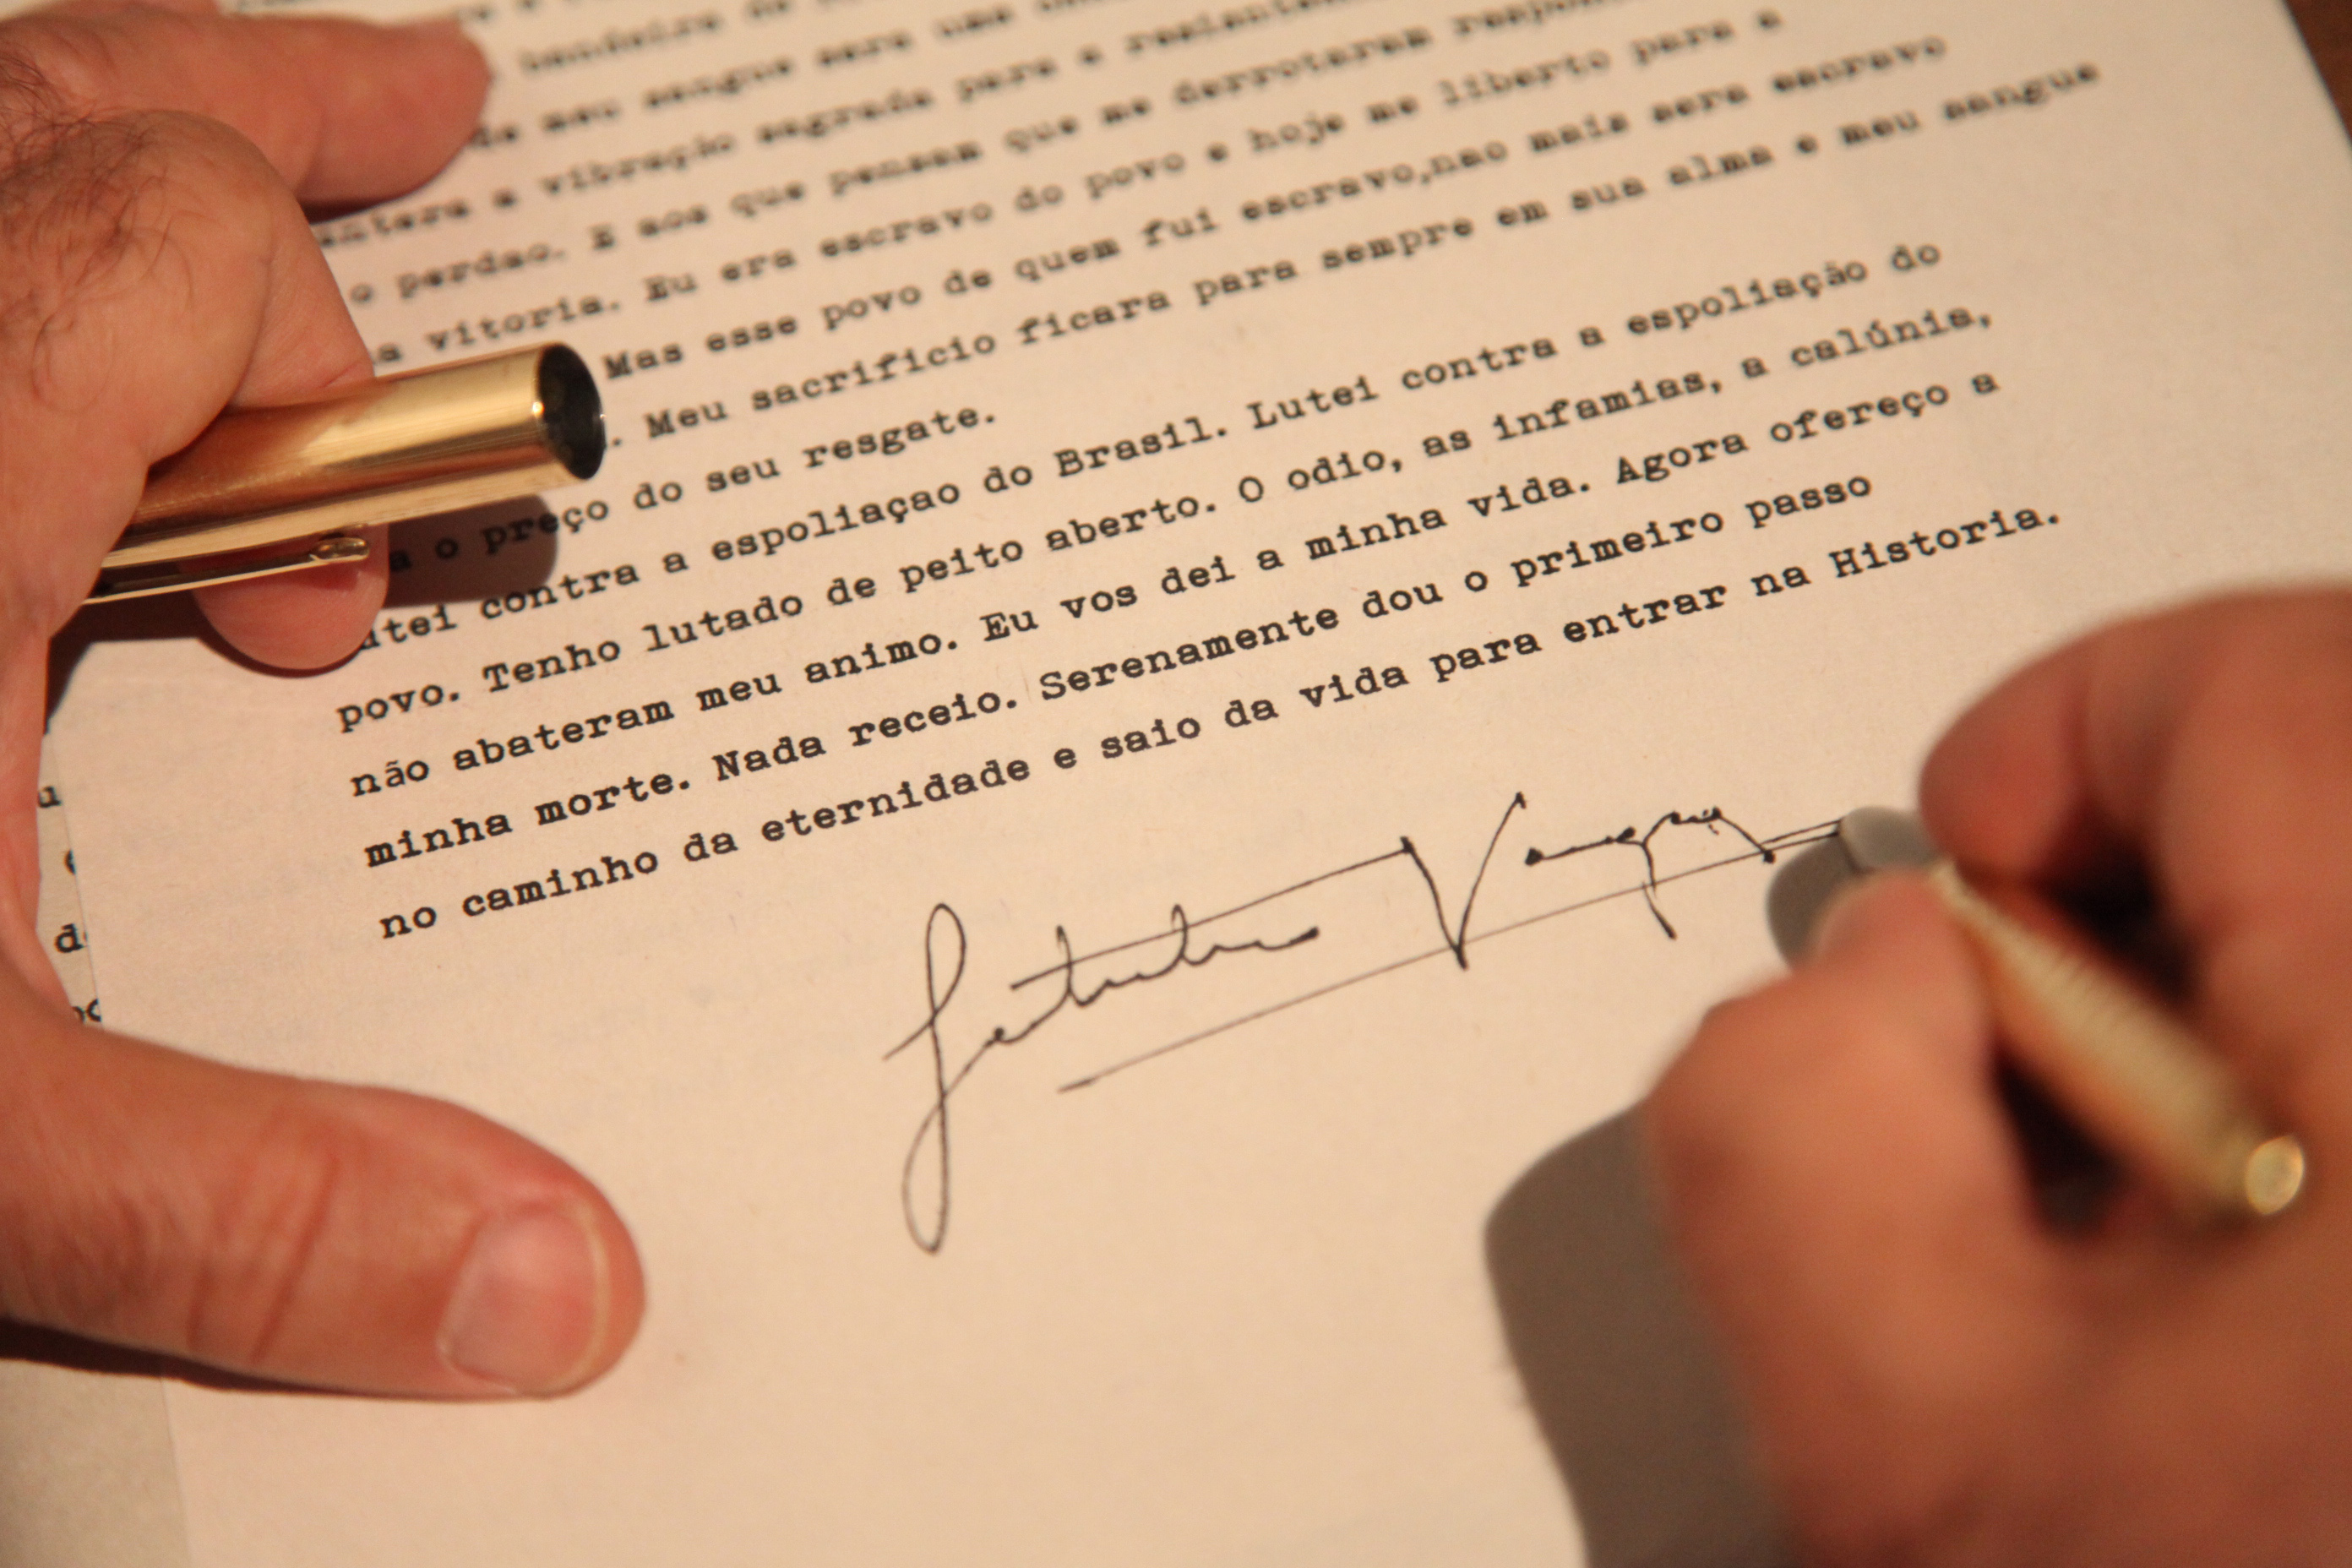 bandeira de
de meu sangue sera uma
a vibração sagrada para a
o perdao. E aos que pensam que me derrotaram
a vitoria. Eu era escravo do povo e hoje me liberto para a
Mas esse povo de quem fui escravo,nao mais sera escravo
. Meu sacrificio ficara para sempre em sua alma e meu sangue
a o preço do seu resgate.
utei contra a espoliaçao do Brasil. Lutei contra a espoliação do
povo. Tenho lutado de peito aberto. O odio, as infamias, a calúnia,
não abateram meu animo. Eu vos dei a minha vida. Agora ofereço a
minha morte. Nada receio. Serenamente dou o primeiro passo
no caminho da eternidade e saio da vida para entrar na Historia.
Getulio Vargas